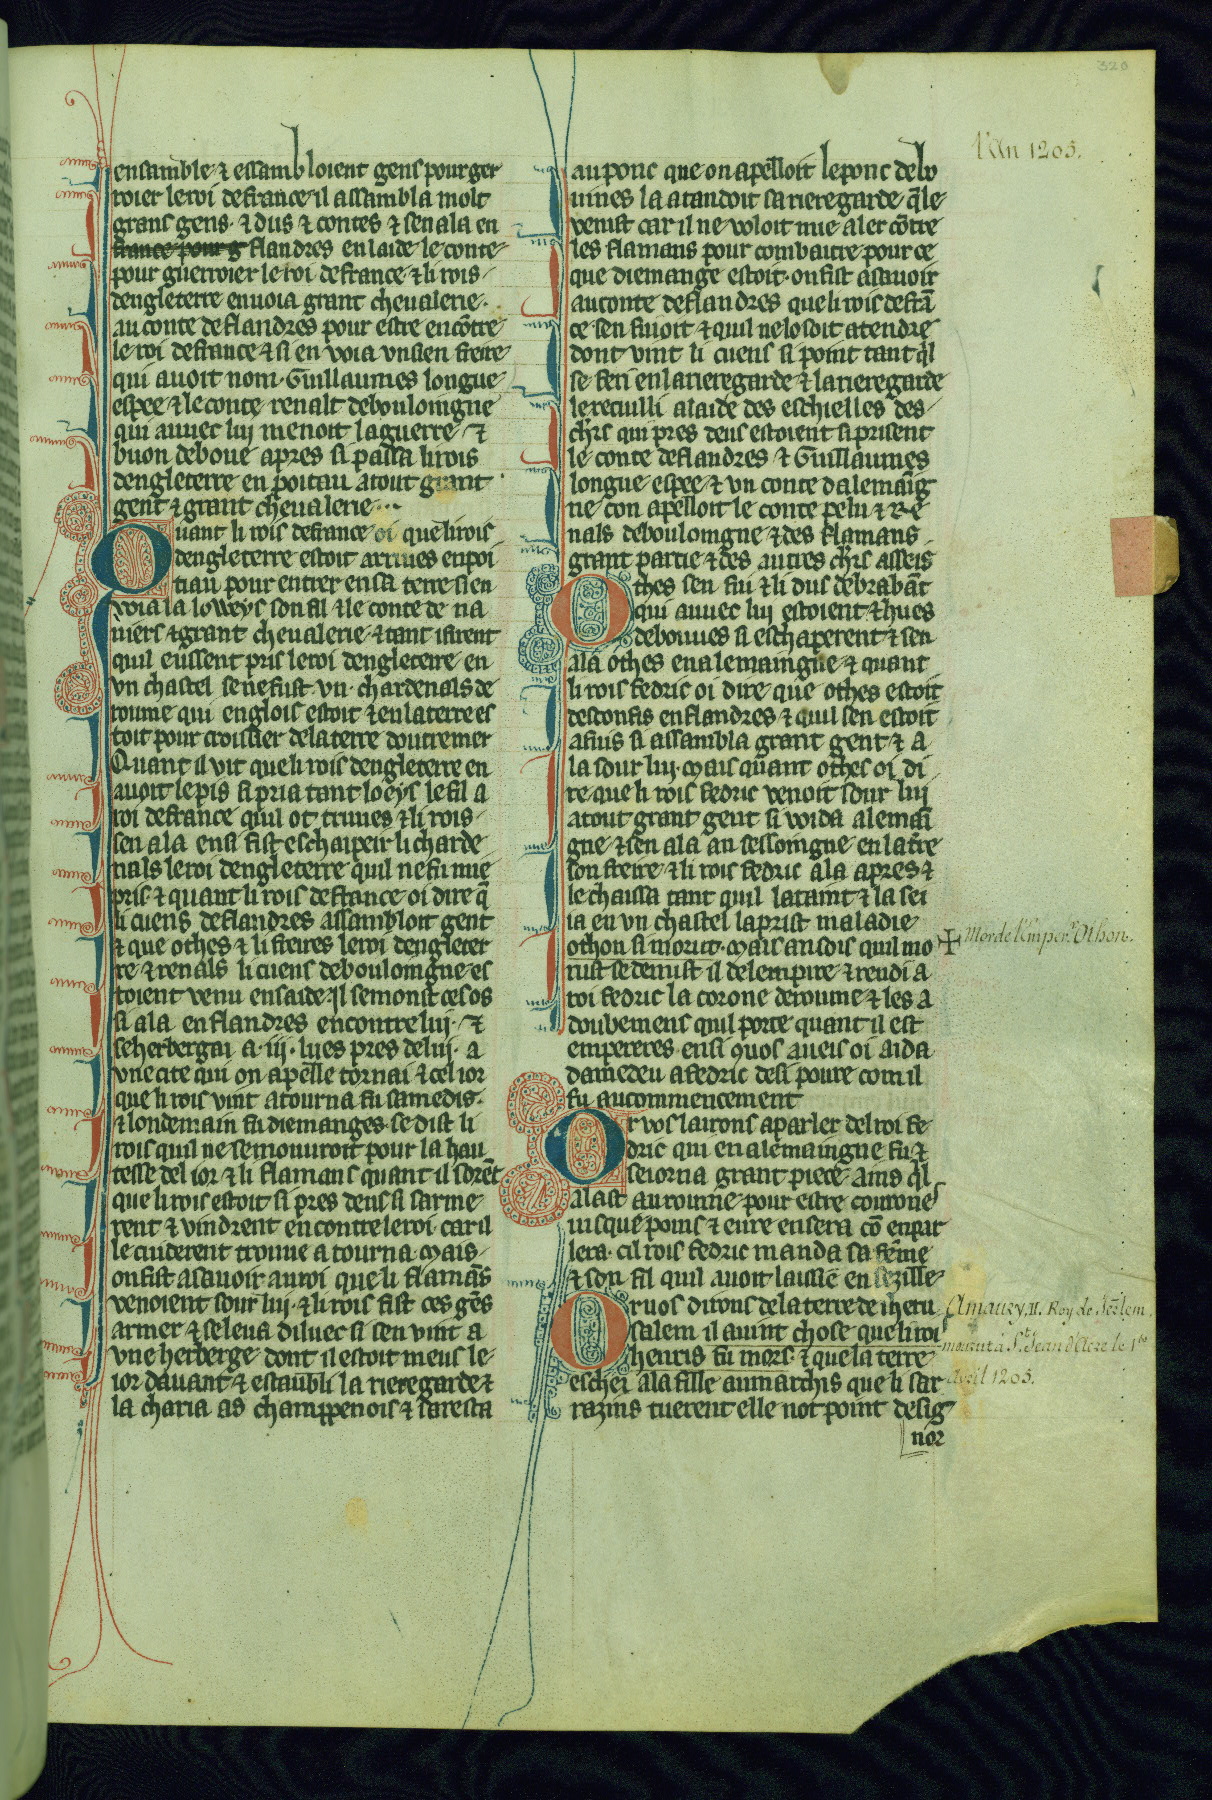 320
l'An 1205.
ensamble ⁊ essambloient gens pour ger
roier le roi de france il assambla molt
grans gens ⁊ dus ⁊ contes ⁊ sen ala en
france pour g flandres en laide le conte
pour guerroier le roi de france ⁊ li rois
dengleterre enuoia grant cheualerie.
au conte de flandres pour estre encōtre
le roi de france ⁊ si en voia vn sien freire
qui auoit nom Guillaumes longue
espee ⁊ le conte renalt de bouloingne
qui auuec lui menoit la guerre ⁊
huon de boue apres si passa li rois
dengleterre en poitau atout grant
gent ⁊ grant cheualerie
Quant li rois de france oi que li rois
dengleterre estoit arriues en poi
tiau pour entrer en sa terre si en
voia la loweys son fil ⁊ le conte de na
uiers ⁊ grant cheualerie ⁊ tant i firent
quil eussent pris le roi dengleterre en
vn chastel se ne fust vn chardenals de
roume qui englois estoit ⁊ en la terre es
toit pour croisier de la terre doutremer
Quant il vit que li rois dengleterre en
auoit le pis si pria tant loeys le fil a
roi de france quil ot triues ⁊ li rois
sen ala ensi fist eschaipeir li charde
nals le roi dengleterre quil ne fu mie
pris ⁊ quant li rois de france oi dire q̄
li cuens de flandres assambloit gent
⁊ que othes ⁊ li freires le roi dengleter
re ⁊ renals li cuens de bouloingne es
toient venu en saide Il semonst ces os
si ala en flandres encontre lui ⁊
se herbergai a .iij. lues pres de lui a
vne cite qui on apelle tornai ⁊ cel ior
que li rois vint a tourna fu samedis.
⁊ londemain fu diemanges se dist li
rois quil ne se mouuroit pour la hau
tesse del ior ⁊ li flamans quant il sorēt
que li rois estoit si pres deus si sarme
rent ⁊ vindrent en contre le roi car il
le cuiderent trouue a tourna Mais
on fist asauoir au roi que li flamās
venoient sour lui ⁊ li rois fist ces gēs
armer ⁊ se leua diluec si sen vint a
vne herberge dont il estoit meus le
ior dauant ⁊ estaubli la rieregarde ⁊
la charia as champpenois ⁊ saresta
au pont que on apelloit le pont de bo
uines la atandoit sa rieregarde q̄ le
venist car il ne voloit mie aler cōtre
les flamans pour combatre pour ce
que diemange estoit on fist asauoir
au conte de flandres que li rois de frā
ce sen fuioit ⁊ quil ne losoit atendre
dont vint li cuens si point tant q̄l
se feri en larieregarde ⁊ larieregarde
le reciulli a laide des eschielles des
chrs qui pres deus estoient si prisent
le conte de flandres ⁊ Guillaumes
longue espee ⁊ vn conte dalemaīg
ne con apelloit le conte pelu ⁊ Re
nals de bouloingne ⁊ des flamans
grant partie ⁊ des autres chrs asseis
Othes sen fui ⁊ li dus de brabāt
qui auuec lui estoient ⁊ hues
de bouues si eschaperent ⁊ sen
ala othes en alemaingne ⁊ quant
li rois fedric oi dire que othes estoit
desconfis en flandres ⁊ quil sen estoit
afuis si assambla grant gent ⁊ a
la sour lui Mais quant othes oi di
re que li rois fedric venoit sour lui
atout grant gent si voida alemai
gne ⁊ sen ala an sessoingne en la tre
son freire ⁊ li rois fedric ala apres ⁊
le chaissa tant quil lataint ⁊ la sei
ia en vn chastel la prist maladie
othon si morut Mais ansois quil mo
rust se demist il de lempire ⁊ rendi a
roi fedric la corone de roume ⁊ les a
doubemens quil porte quant il est
empereres ensi quos aueis oi aida
damedeu a fedric de si poure com il
fu au commencement
Or vos lairons a parler del roi fe
dric qui en alemaingne fu ⁊
seiorna grant piece ains q̄l
alast au roume pour estre couroneˢ
iusque poins ⁊ eure en sera cō en par
lera cil rois fedric manda sa feme
⁊ son fil quil auoit laissie en sezille
Or uos dirons de la terre de iheru
salem il auint chose que li roi
henris fu mors ⁊ que la terre
eschei a la fille au marchis que li sar
razins tuerent elle not point de sig
nor
✠ Mort de l'Emper.r Othon.
Amaury, II. Roy de Jérlem,
mourut à St. Jean d'Acre le 1er
Avril 1205.